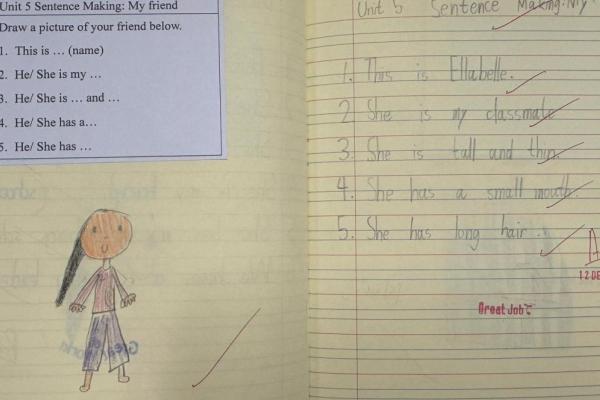 Unit 5 Sentence Making: My friend
Draw a picture of your friend below.
1. This is … (name)
2. He/ She is my …
3. He/ She is … and …
4. He/ She has a…
5. He/ She has …
Unit 5 Sentence Making: My
1. This is Ellabelle.
2 She is my classmate
3. She is tall and thin.
4. She has a small mouth.
5. She has long hair.
A
12 DE
Great Job